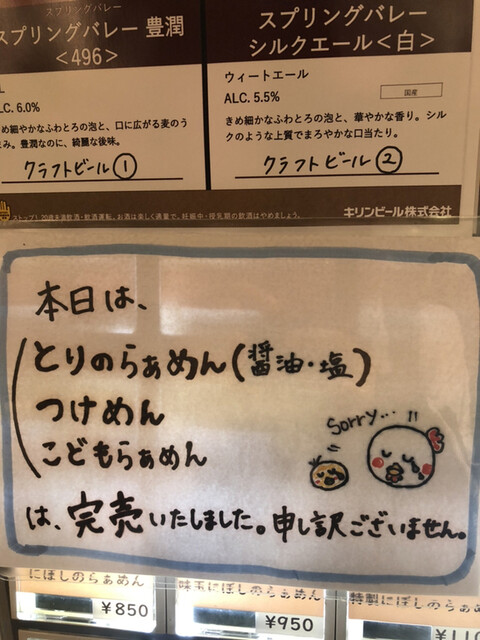 スプリングバレー
スプリングバレー 豊潤
<496>
ALC. 6.0%
きめ細やかなふわとろの泡と、口に広がる麦のう
まみ。豊潤なのに、綺麗な後味。
クラフトビール①
スプリングバレー
シルクエール<白>
ウィートエール
国産
ALC. 5.5%
きめ細やかなふわとろの泡と、華やかな香り。シル
クのような上質でまろやかな口当たり。
クラフトビール②
ストップ!20歳未満飲酒・飲酒運転。お酒は楽しく適量で。妊娠中・授乳期の飲酒はやめましょう。
キリンビール株式会社
本日は、
とりのらぁめん(醤油・塩)
つけめん
こどもらぁめん
Sorry...!!
は、完売いたしました。申し訳ございません。
にぼしのらぁめん
¥850
味玉にぼしのらぁめん
¥950
特製にぼしのらぁめん